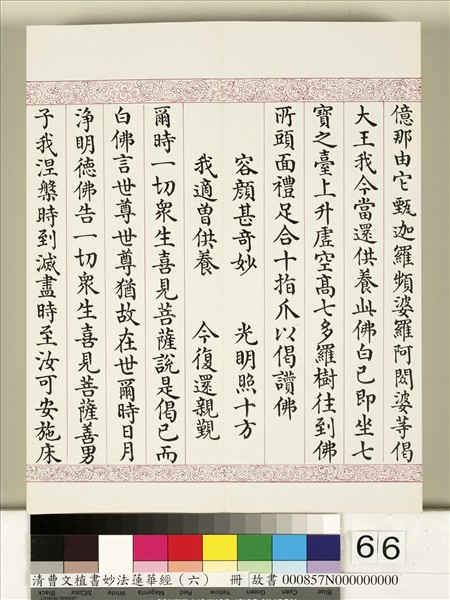 億那由它甄迦羅頻婆羅阿閦婆等偈
大王我今當還供養此佛白已即坐七
寶之臺上升虛空高七多羅樹往到佛
所頭面禮足合十指爪以偈讚佛
容顏甚奇妙　光明照十方
我適曾供養　今復還親覲
爾時一切眾生喜見菩薩說是偈已而
白佛言世尊世尊猶故在世爾時日月
淨明德佛告一切眾生喜見菩薩善男
子我涅槃時到滅盡時至汝可安施床
66
Black 3/Color White Magenta Red Yellow Green Cyan Blue
清曹文植書妙法蓮華經（六）　冊　故書 000857N000000000